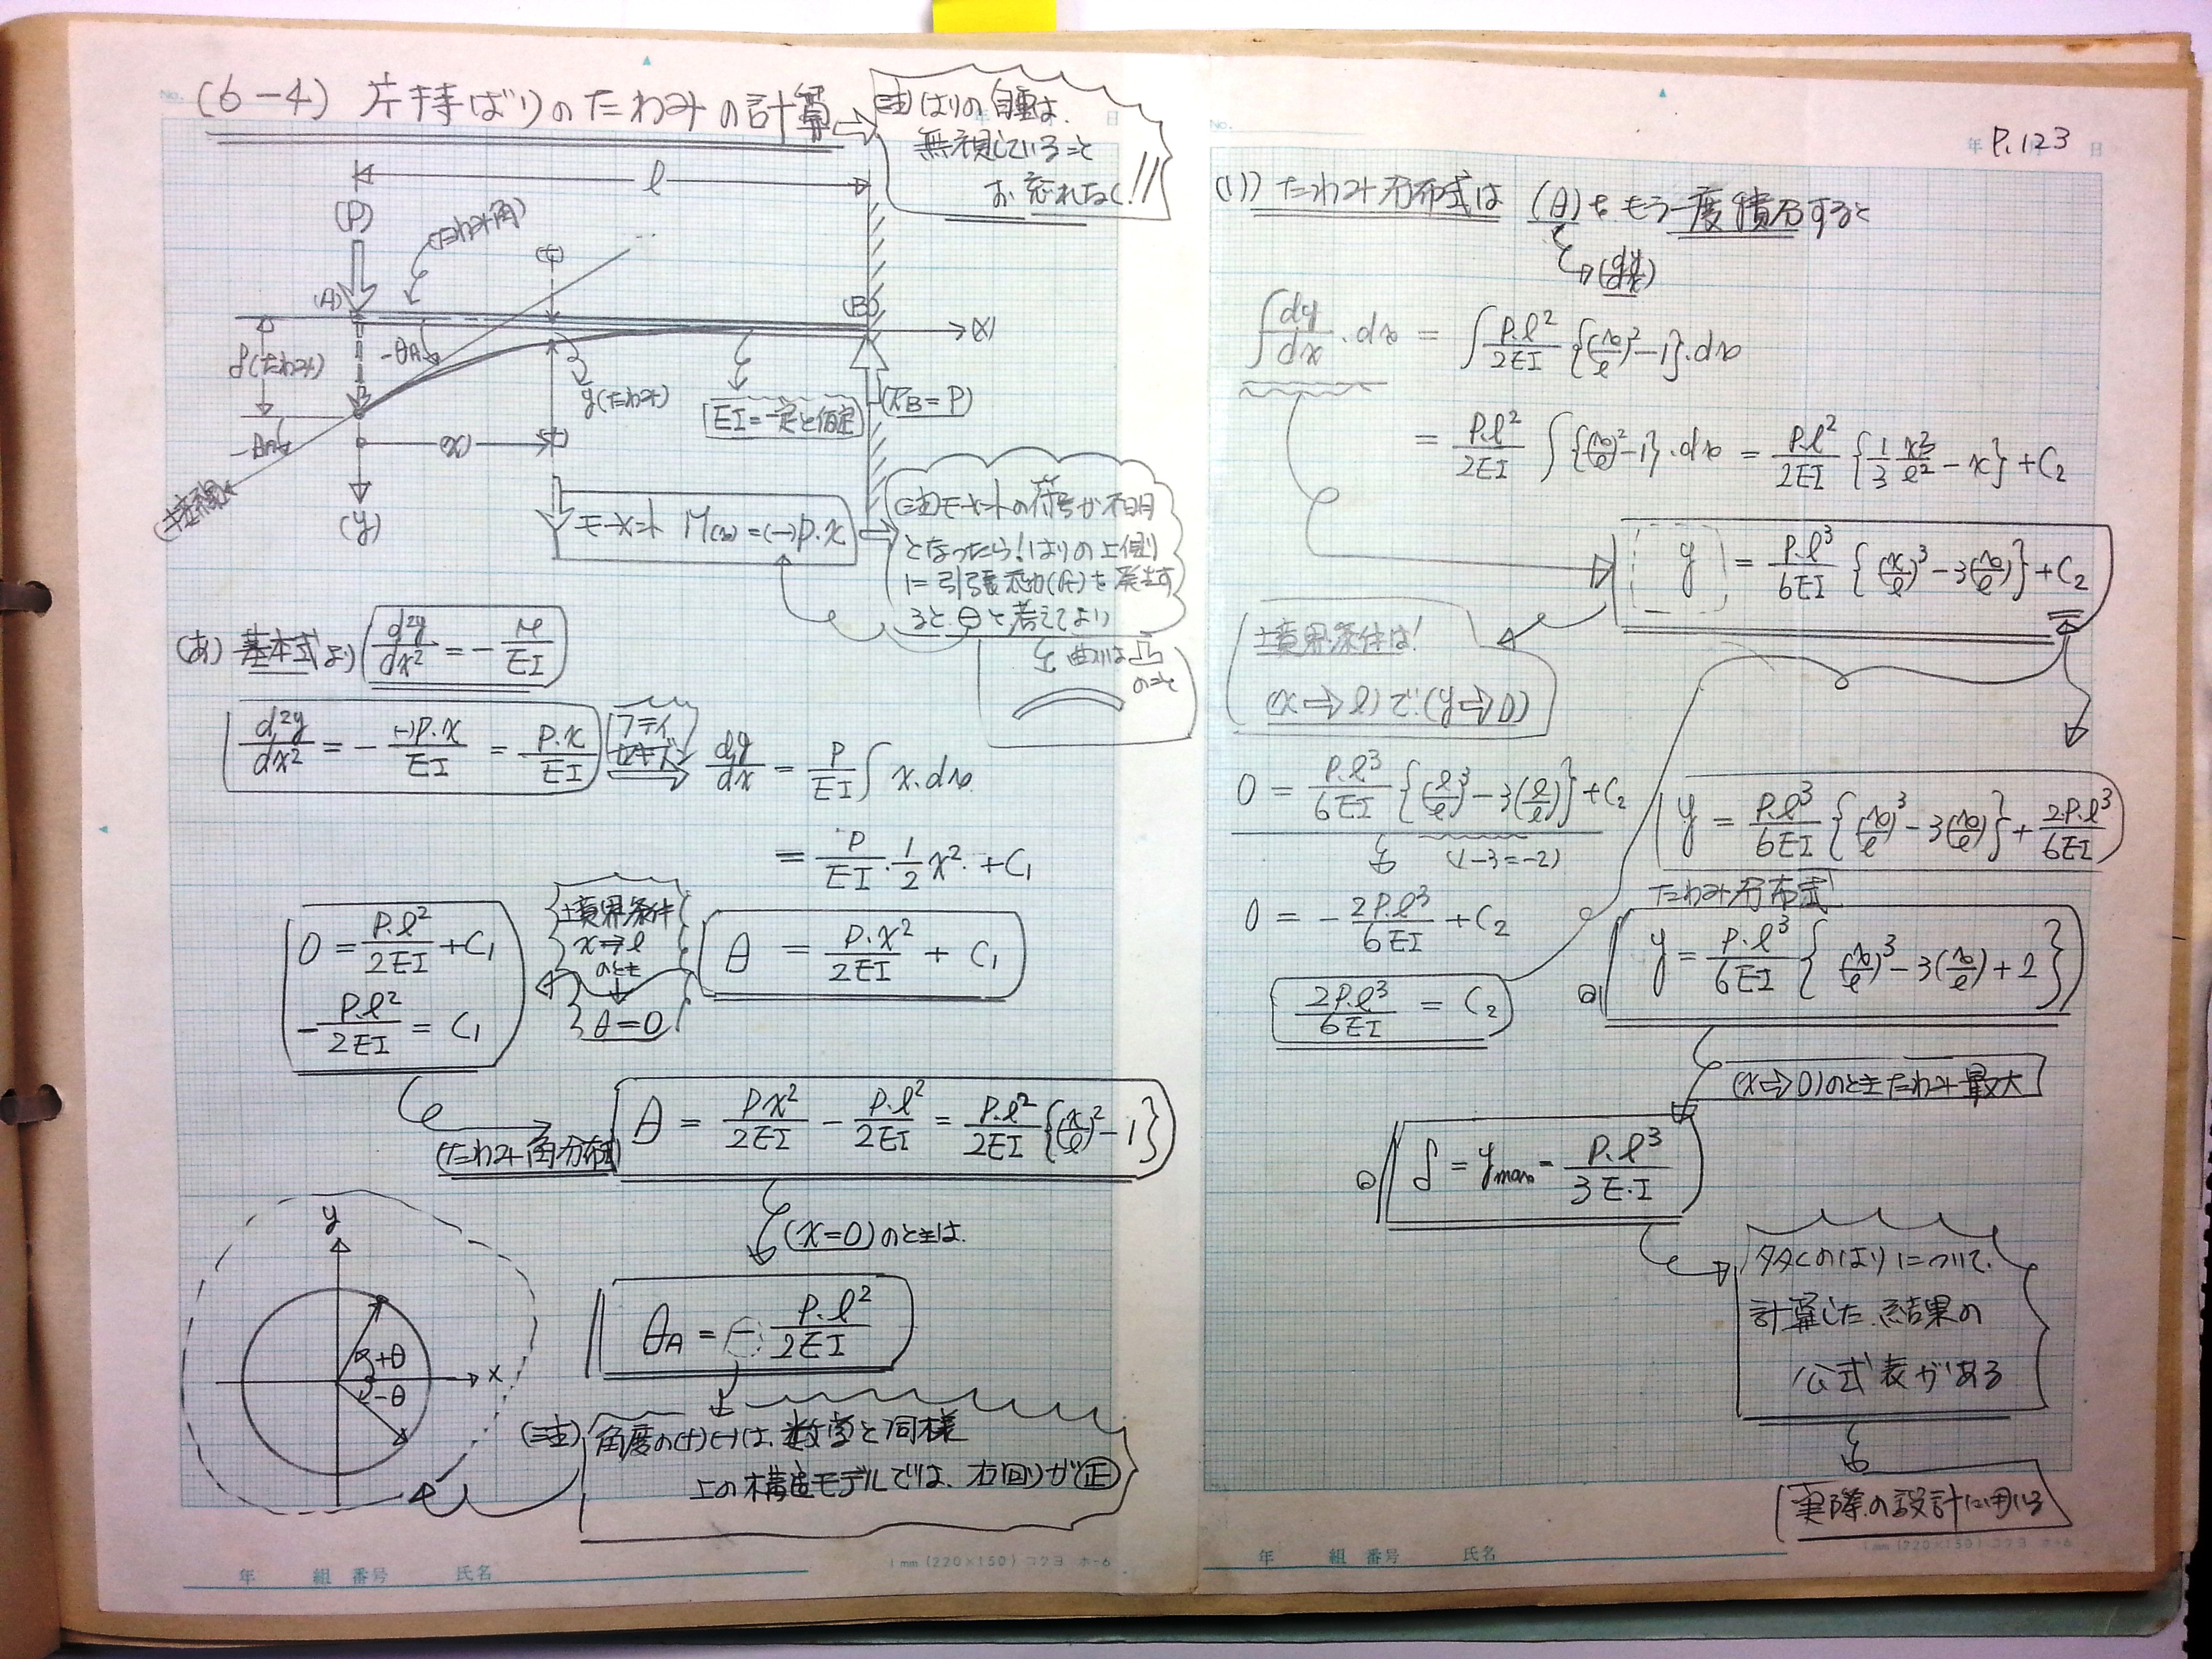 (6-4) 片持ばりのたわみの計算
(注)はりの自重は、
無視していること
お忘れなく!!
l
(P)
(たわみ角)
(A)
(B)
(x)
δ(たわみ)
-θA
y(たわみ)
EI=一定と仮定
(RB=P)
-θA
(x)
(接線)
(y)
モーメント M(x)=(-)P.x
(注)モーメントの符号が不明
となったら!はりの上側
に引張応力(σt)を発生す
ると⊖と考えてよい
曲りは凸
のこと
(あ) 基本式より d²y/dx² = - M/EI
d²y/dx² = - (-)P.x/EI = P.x/EI
dy/dx = P/EI ∫ x.dx
= P/EI . 1/2 x² + C₁
θ = P.x²/2EI + C₁
境界条件
x⇒l
のとき
θ=0
0 = P.l²/2EI + C₁
- P.l²/2EI = C₁
(たわみ角分布式)
θ = Px²/2EI - P.l²/2EI = P.l²/2EI {(x/l)² - 1}
(x=0)のときは、
θA = - P.l²/2EI
y
x
+θ
-θ
(注) 角度の(+)(-)は、数学と同様
上の構造モデルでは、右回りが正
No.
年 日
P.123
(い) たわみ分布式は (θ)をもう一度積分すると
(dy/dx)
∫ dy/dx . dx = ∫ P.l²/2EI {(x/l)² - 1}.dx
= P.l²/2EI ∫ {(x/l)² - 1}.dx = P.l²/2EI {1/3 x³/l² - x} + C₂
y = P.l³/6EI {(x/l)³ - 3(x/l)} + C₂
境界条件は!
(x⇒l)で(y⇒0)
0 = P.l³/6EI {(l/l)³ - 3(l/l)} + C₂
(1-3=-2)
0 = - 2P.l³/6EI + C₂
2P.l³/6EI = C₂
y = P.l³/6EI {(x/l)³ - 3(x/l)} + 2P.l³/6EI
たわみ分布式
y = P.l³/6EI {(x/l)³ - 3(x/l) + 2}
(x⇒0)のときたわみ最大
δ = ymax = P.l³/3E.I
多くのはりについて、
計算した結果の
公式表がある
実際の設計に用いる
年 組 番号 氏名
1mm(220×150) コクヨ ホ-6
年 組 番号 氏名
1mm(220×150) コクヨ ホ-6